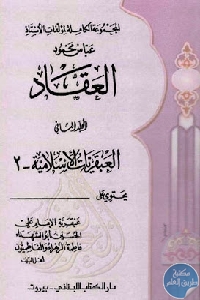 المجموعة الكاملة لمؤلفات الأستاذ
عباس محمود
العقاد
المجلد الثاني
العبقريات الإسلامية - ٢
يحتوي على
عبقرية الإمام علي
الحسين أبو الشهداء
فاطمة الزهراء والفاطميون
دار الكتاب اللبناني - بيروت
مكتبة
طريق العلم